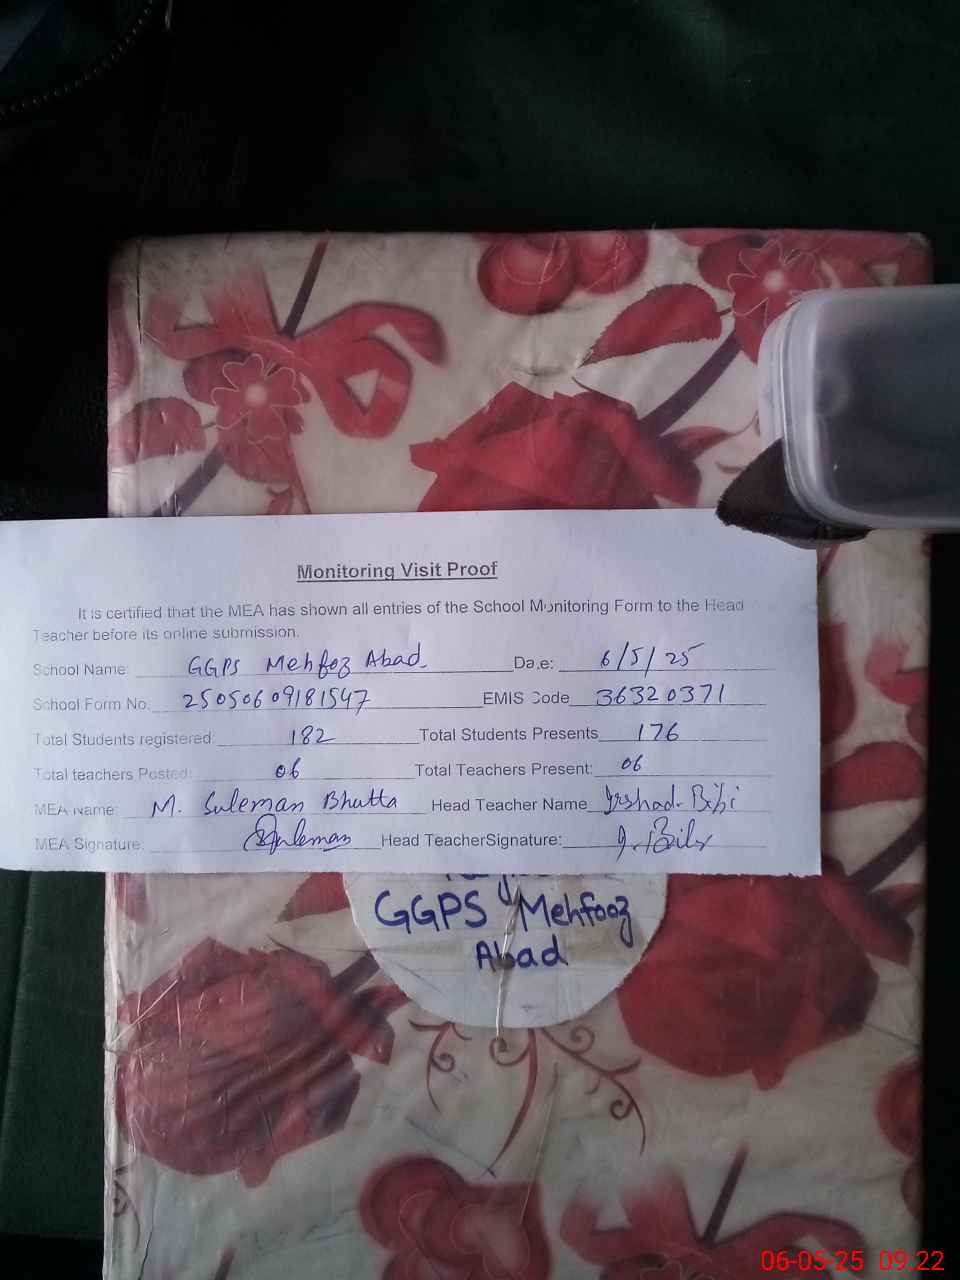 Monitoring Visit Proof
It is certified that the MEA has shown all entries of the School Monitoring Form to the Head
Teacher before its online submission.
School Name: GGPS Mehfooz Abad Date: 6/5/25
School Form No. 25050609181547 EMIS Code 36320371
Total Students registered: 182 Total Students Presents 176
Total teachers Posted: 06 Total Teachers Present: 06
MEA Name: M. Suleman Bhutta Head Teacher Name Irshad Bibi
MEA Signature: Suleman Head TeacherSignature:
GGPS Mehfooz
Abad
06-05-25 09:22